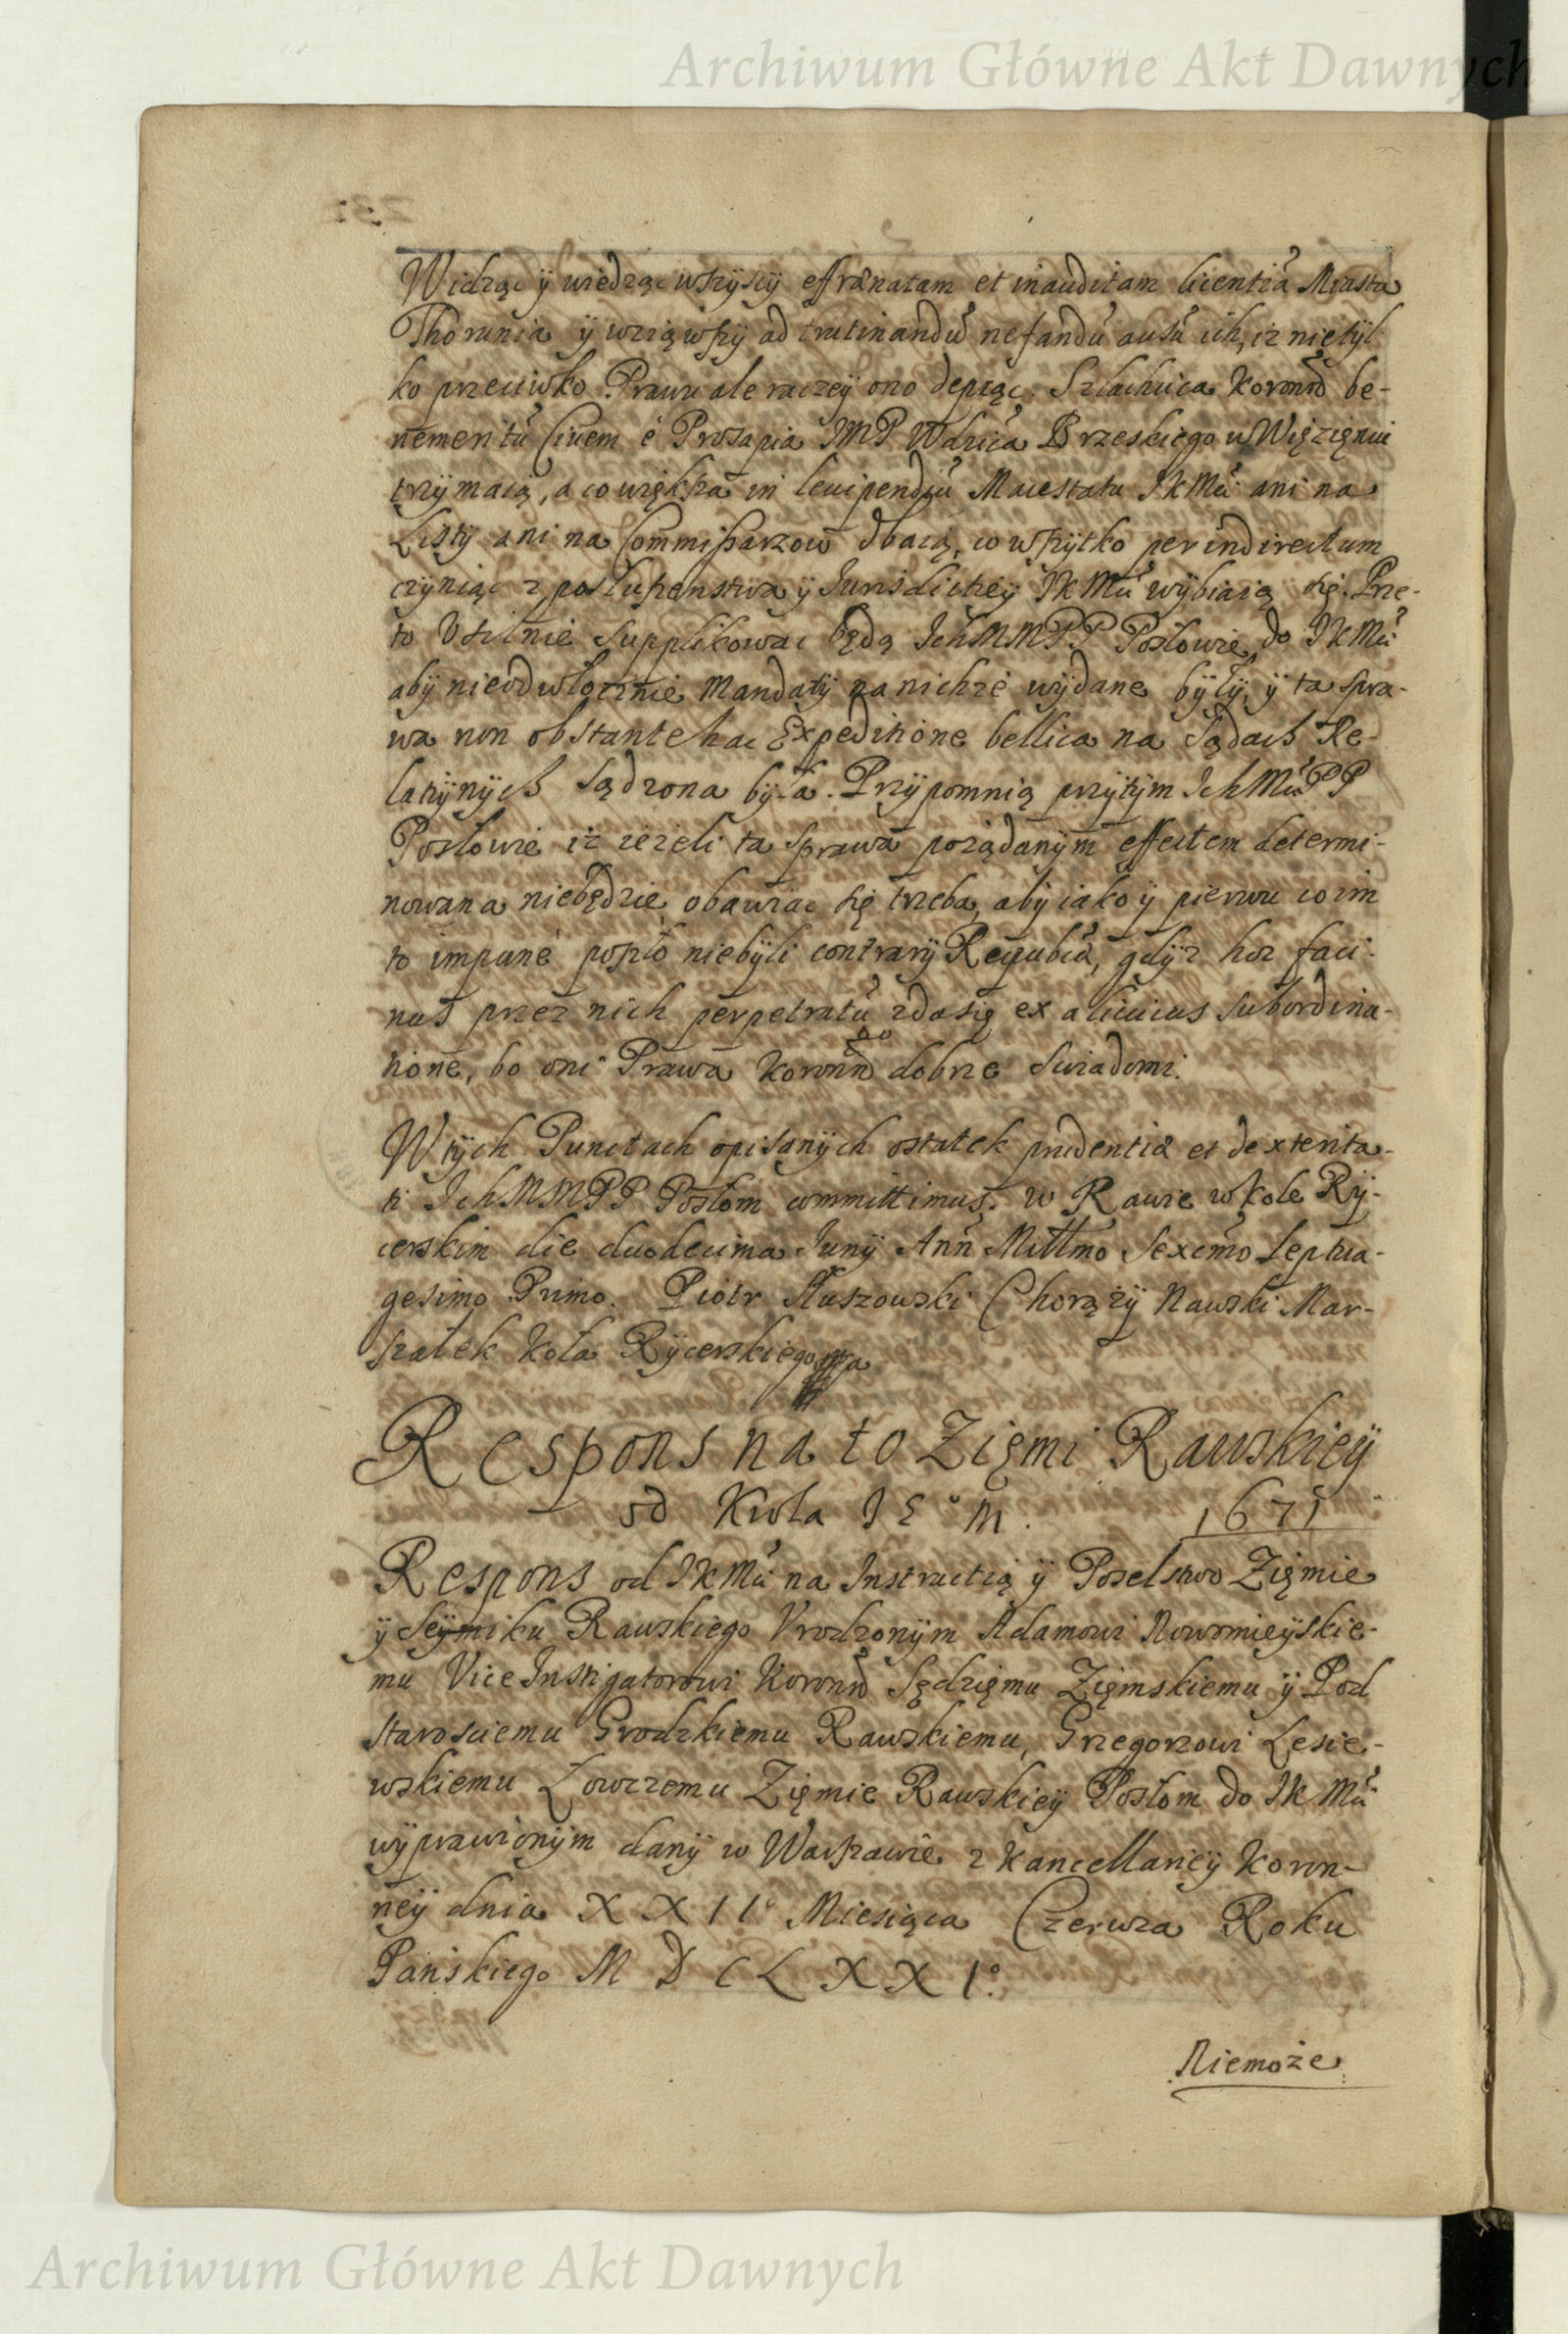 Archiwum Główne Akt Dawnych
Widząc ÿ wiedząc wszÿscÿ effrænatam et inauditam licentiã Miasta
Thorunia ÿ wziąwszÿ ad trutinandũ nefandũ ausũ ich, iz nietÿl
ko przeciwko Prawu ale raczeÿ ono depcąc. Szlachcica Koronñ be-
nemeritũ Civem è Prosapia JMP Wdzica Brzeskiego w Więzięniu
trzÿmaią, a co większa in levipendiũ Maiestatu JKMći ani na
Listÿ ani na Commissarzow dbaią, co wszÿtko per indirectum
czÿniąc z posłuszenstwa ÿ Jurisdictieÿ JKMći wÿbiaią się. Prze-
to Vsilnie Supplikowac będą IchMMPP Posłowie do JKMći
abÿ nieodwłocznie Mandatÿ na nichze wÿdane bÿłÿ, ÿ ta spra-
wa non obstante hac Expeditione bellica na Sądach Re-
latÿinÿch Sądzona bÿła. Przÿpomnią przÿtÿm IchMćiPP
Posłowie iz iezeli ta sprawa porządanÿm effectem determi-
nowana niebędzie, obawiac się trzeba, abÿ iako ÿ pierwu co im
to impunè poszło niebÿli contrarÿ Reipubcæ, gdÿz hoc faci-
nus przez nich perpetratũ zda się ex alicuius Subordina-
tione, bo oni Prawa Koronñ dobrze swiadomi.
W tÿch Punctach opisanÿch ostatek prudentiæ et dexterita-
ti IchMMPP Posłom committimus. w Rawie w Kole Rÿ-
cerskim die duodecima Junÿ Anñ Millmo Sexcmo Septua-
gesimo Primo. Piotr Słuszowski Chorązÿ Rawski Mar-
szałek Koła Rÿcerskiego mpa
Respons na to Zięmi Rawskieÿ
od Krola JE°M. 1671
Respons od JKMći na Instructią ÿ Poselstwo Zięmie
ÿ Seÿmiku Rawskiego Vrodzonÿm Adamowi Nowomieÿskie-
mu ViceInstigatorowi Koronñ Sędzięmu Zięmskiemu ÿ Pod
Starosciemu Grodzkiemu Rawskiemu, Grzegorzowi Lesie-
wskiemu Łowczemu Zięmie Rawskieÿ Posłom do JKMći
wÿprawionÿm danÿ w Warszawie z Kancellarieÿ Koron-
neÿ dnia XXII° Miesiąca Czerwca Roku
Pańskiego MDCLXXI°.
Niemoże
Archiwum Główne Akt Dawnych